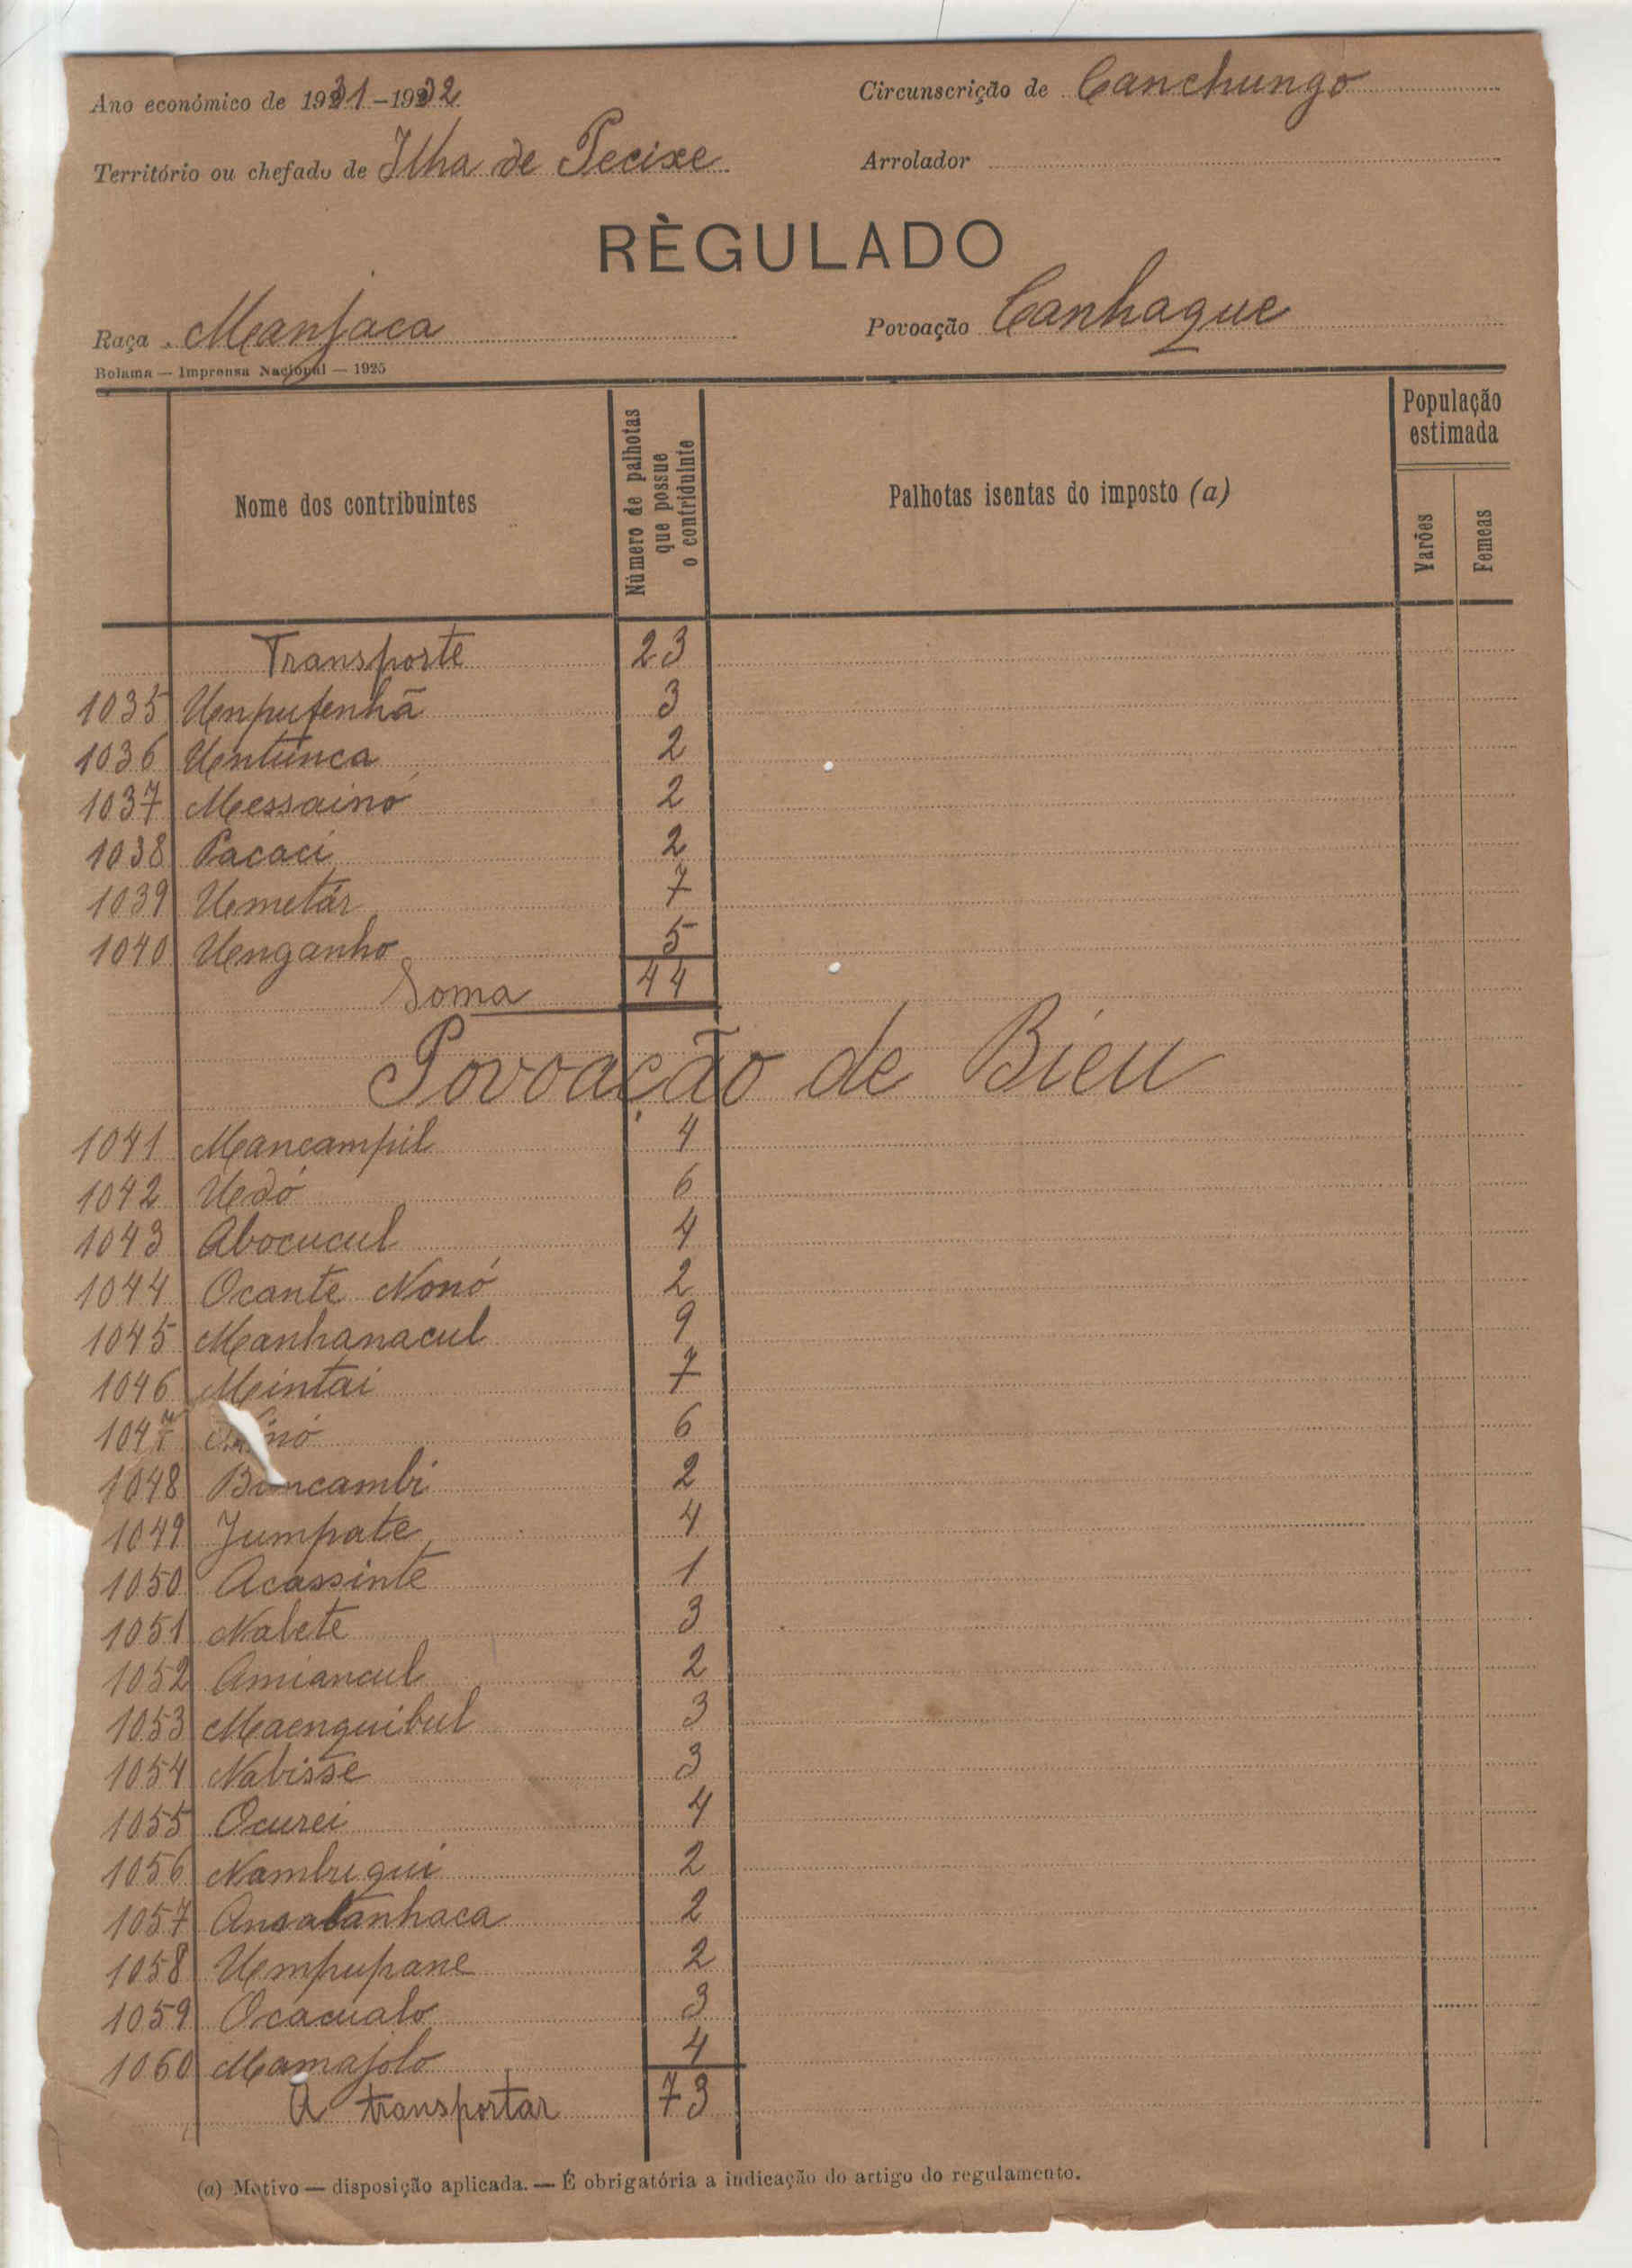 Ano económico de 1931-1932
Circunscrição de Canchungo
Território ou chefado de Ilha de Pecixe
Arrolador
RÈGULADO
Raça Manjaca
Povoação Canhaque
Bolama — Imprensa Nacional — 1925
Nome dos contribuintes
Número de palhotas
que possue
o contriduinte
Palhotas isentas do imposto (a)
População
estimada
Varões
Femeas
Transporte 23
1035 Unpufenhã 3
1036 Untunca 2
1037 Messainó 2
1038 Pacaci 2
1039 Umetár 7
1040 Unganho 5
Soma 44
Povoação de Bieu
1041 Mancampil 4
1042 Uedó 6
1043 Abocucul 4
1044 Ocante Nonó 2
1045 Manhanacul 9
1046 Mintai 7
1047 6
1048 2
1049 Jumpate 4
1050 Acassinte 1
1051 Nabete 3
1052 Amiancul 2
1053 Maenquibul 3
1054 Nabisse 3
1055 Ocurei 4
1056 Nambrequi 2
1057 2
1058 Umpupane 2
1059 Ocacualo 3
1060 Mamajolo 4
A transportar 73
(a) Motivo — disposição aplicada. — É obrigatória a indicação do artigo do regulamento.